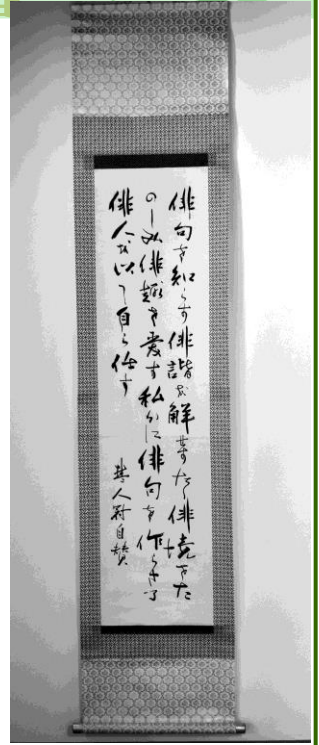 俳句を知らす俳諧を解せすたゝ俳境をた
のしみ俳趣を愛す私かに俳句を作らさる
俳人を以て自ら任す
楚人冠自賛